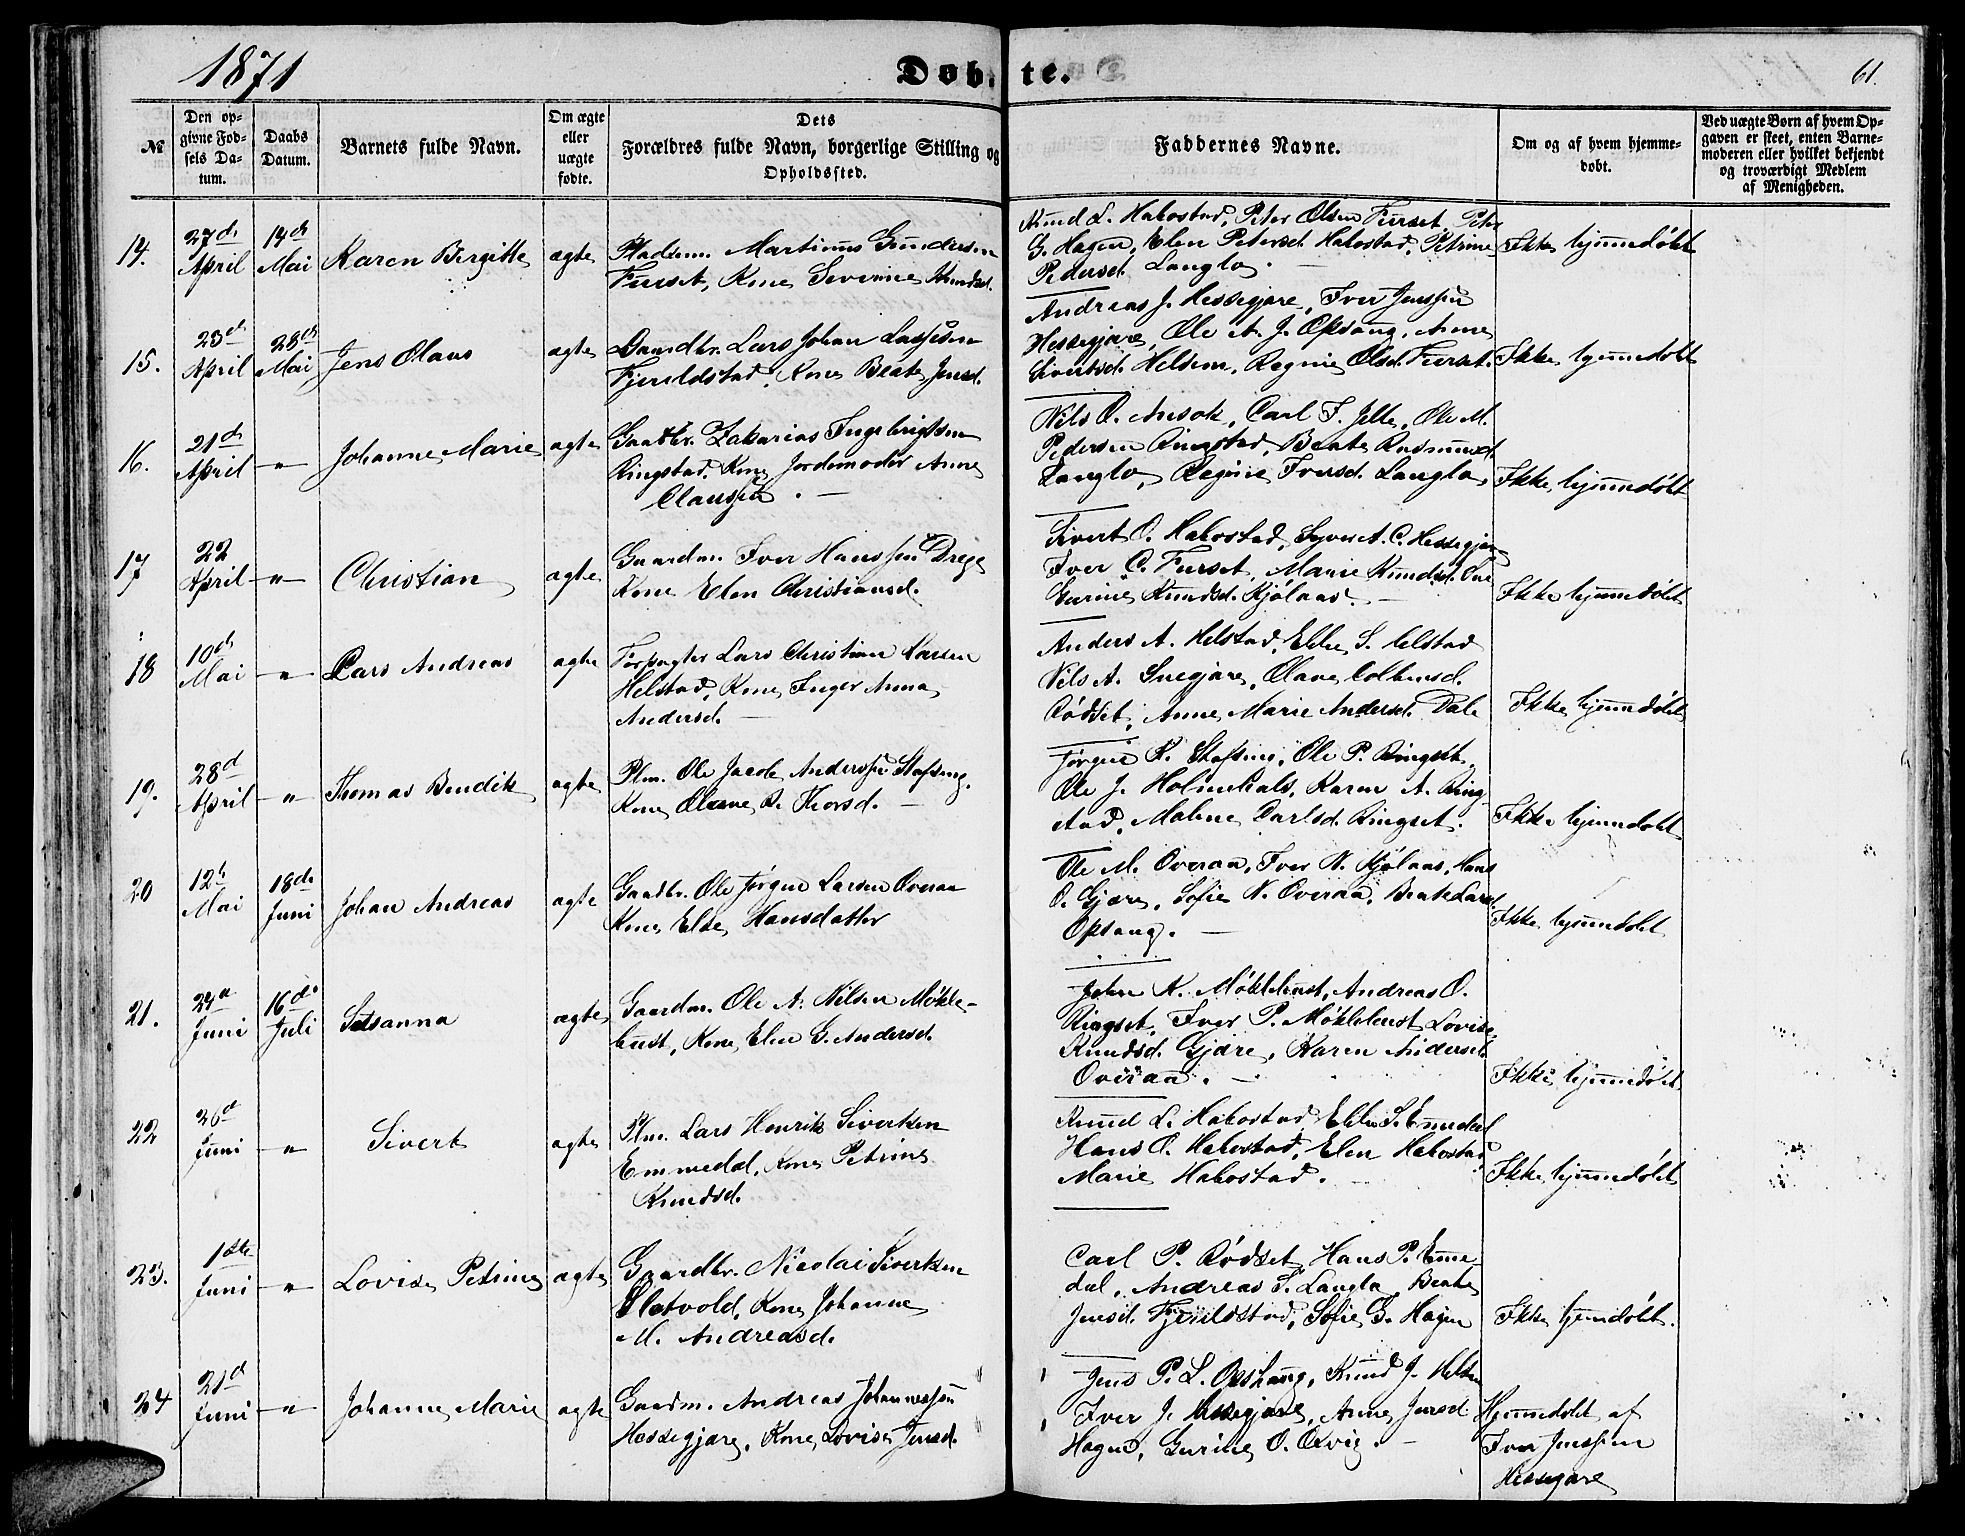 1871
Døbte.
61.
№
Den opgivne Fødsels Datum.
Daabs Datum.
Barnets fulde Navn.
Om ægte eller uægte fødte.
Dets Forældres fulde Navn, borgerlige Stilling og Opholdssted.
Faddernes Navne.
Om og af hvem hjemmedøbt.
Ved uægte Børn af hvem Opgaven er skeet, enten Barnemoderen eller hvilket bekjendt og troværdigt Medlem af Menigheden.
14. 27de April 14de Mai Karen Bergitte ægte
Pladsm. Martinus Gundersen
Furset, Kone Severine Knudsd.
Knud L. Habostad, Peter Olsen Furset, Peter
G. Hagen, Elen Petersd. Habostad, Petrine
Pedersd. Langlo.
Ikke hjemmedøbt
15. 23d April 28de Mai Jens Olaus ægte
Gaardbr. Lars Johan Lassesen
Fjeldstad, Kone Beate Jensd.
Andreas J. Hessegjære, Iver Jenssen
Hessegjære, Ole A. J. Opsang, Anne
Sivertsd. Helsem, Regine Olsd. Furset.
Ikke hjemmedøbt
16. 21de April " Johanne Marie ægte
Gaardbr. Zakarias Ingebrigtsen
Ringstad, Kone Jordemoder Anne
Clausen.
Nils O. Ansok, Carl F. Jelle, Ole M.
Pedersen Ringstad, Beate Rasmusd.
Langlo, Regine Iversd. Langlo,
Ikke hjemmedøbt
17 22 April " Christian ægte
Gaardm. Iver Hanssen Drege
Kone Elen Christiansd.
Sivert O. Habostad, Syver A. C. Hessegjære
Iver C. Furset, Marie Knudsd.
Gurine Knudsd. Kjølaas.
Ikke hjemmedøbt
18 10de Mai " Lars Andreas ægte
Forpagter Lars Christian Larsen
Helstad, Kone Inger Anna
Andersd.
Anders A. Helstad, Ellen S. Helstad
Nils A. Snegjære, Olave Colbensd.
Rødset, Anne Marie Andersd. Dale
Ikke hjemmedøbt
19. 28d April " Thomas Bendik ægte
Plm. Ole Jacob Anderssen Stafseng.
Kone Olave B. Thorsd.
Jørgen K. Stafseng, Ole P. Ringset,
Ole J. Holmehals, Karen A. Ring-
stad, Malene Carlsd. Ringset.
Ikke hjemmedøbt
20 12te Mai 18de Juni Johan Andreas ægte
Gaardbr. Ole Jørgen Larsen Overaa
Kone Else Hansdatter
Ole M. Overaa, Iver N. Kjølaas, Hans
O. Gjære, Sofie N. Overaa, Beate Larsd.
Opsang.
Ikke hjemmedøbt
21. 24d Juni 16de Juli Susanna ægte
Gaardm. Ole A. Nilsen Møkle-
bust, Kone Elen G. Andersd.
John K. Møklebust, Andreas O.
Ringset, Iver P. Møklebust, Lovise
Knudsd. Gjære, Karen Andersd.
Overaa.
Ikke hjemmedøbt
22 26d Juni " Sivert ægte
Plm. Lars Henrik Sivertsen
Emmedal, Kone Petrine
Knudsd.
Knud L. Habostad, Ellen S. Emmedal
Hans O. Habostad, Elen Habostad
Marie Habostad.
Ikke hjemmedøbt
23. 1ste Juni " Lovise Petrine ægte
Gaardbr. Nicolai Sivertsen
Sletvold, Kone Johanne
M. Andreasd.
Carl P. Rødset, Hans P. Emme-
dal, Andreas S. Langlo, Beate
Jensd. Fjeldstad, Sofie G. Hagen
Ikke hjemdøbt.
24 21d Juni " Johanne Marie ægte
Gaardm. Andreas Johannessen
Hessegjære, Kone Lovise Jensd.
Jens P. L. Opshaug, Knud J. Helsem
Iver J. Hessegjære, Anne Jensd
Hagen, Gurine O. Orvig.
Hjemmedøbt af
Iver Jenssen
Hessegjære